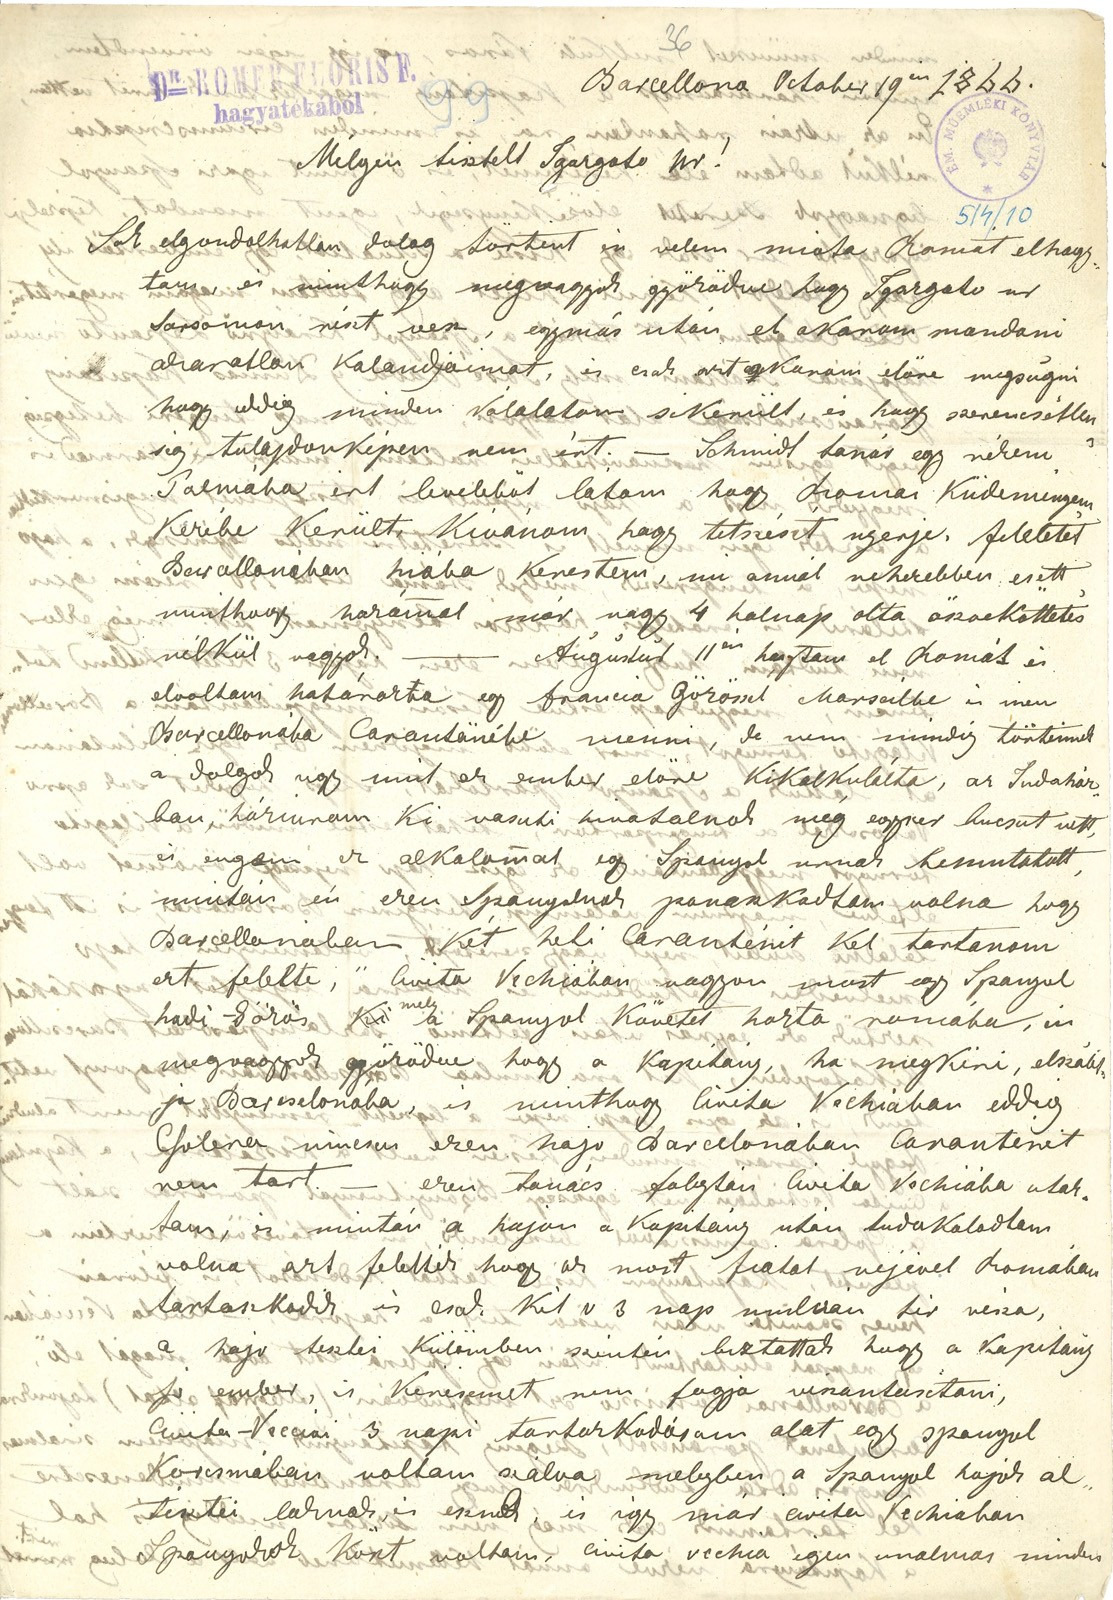 36
Dr. RÓMER FLÓRIS F.
hagyatékából
99
Barcellona October 19én 1866.
FM. MŰEMLÉKI KÖNYVTÁR
5/4/10
Melyen tisztelt Igazgato Ur!
Sok elgondolhatlan dolog történt én velem miota Romát elhagy-
tam, és minthogy megvagyok győződve hogy Igazgato ur
sorsomon részt vesz, egymás után el akarom mondani
akaratlan kalandjaimat, és csak azt akarom előre megsugni
hogy eddig minden válalatom sikerült, és hogy szerencsétlen
ség tulajdonképen nem ért. — Schmidt tanár egy nékem
Palmába irt leveléböl látom hogy Romai küldeményem
kezébe került. Kivánom hogy tetszését nyerje. feleletet
Barcellonában hiába kerestem, mi annál nehezebben esett
minthogy hazámal már vagy 4 holnap olta öszveköttetés
nélkül vagyok. — Augustus 11én hagytam el Romát és
elvoltam határozva egy francia Gözössel Marseilbe és innen
Barcellonába Carantänébe menni, de nem mindig történnek
a dolgok ugy mint az ember előre kikalkulálta, az Indaház-
ban, házi uram ki vasuti hivatalnok még egyszer bucsut vett,
és engem ez alkalomal egy Spanyol urnak bemutatott,
mintán én ezen Spanyolnak panaszkodtam volna hogy
Barcellonában két heti Caranténit kel tartanom
ezt felelte, " Civita Vechiában vagyon most egy Spanyol
hadi Gözös mely a Spanyol követet hozta romába, én
megvagyok győződve hogy a kapitány, ha megkéri, elszálit-
ja Barcselonába, és minthogy Civita Vechiában eddig
Cholera nincsen ezen hajo Barcelonában Caranténit
nem tart. — ezen tanács folytán Civita Vechiába utaz-
tam, és mintán a hajon a kapitány után tudakolodtam
volna azt felelték hogy az most fiatal nejével Romában
tartozkodik és csak két v 3 nap mulván tér visza,
a hajo tisztei külömben szintén biztattak hogy a kapitány
jo ember, és kérésemet nem fogja viszautasitani,
Civita-Vecciai 3 napi tartozkodásom alat egy spanyol
korcsmában voltam szálva melyben a Spanyol hajok al-
tisztei laknak és esznek, és igy már Civita Vechiában
Spanyolok közt voltam. Civita vechia igen unalmas minden